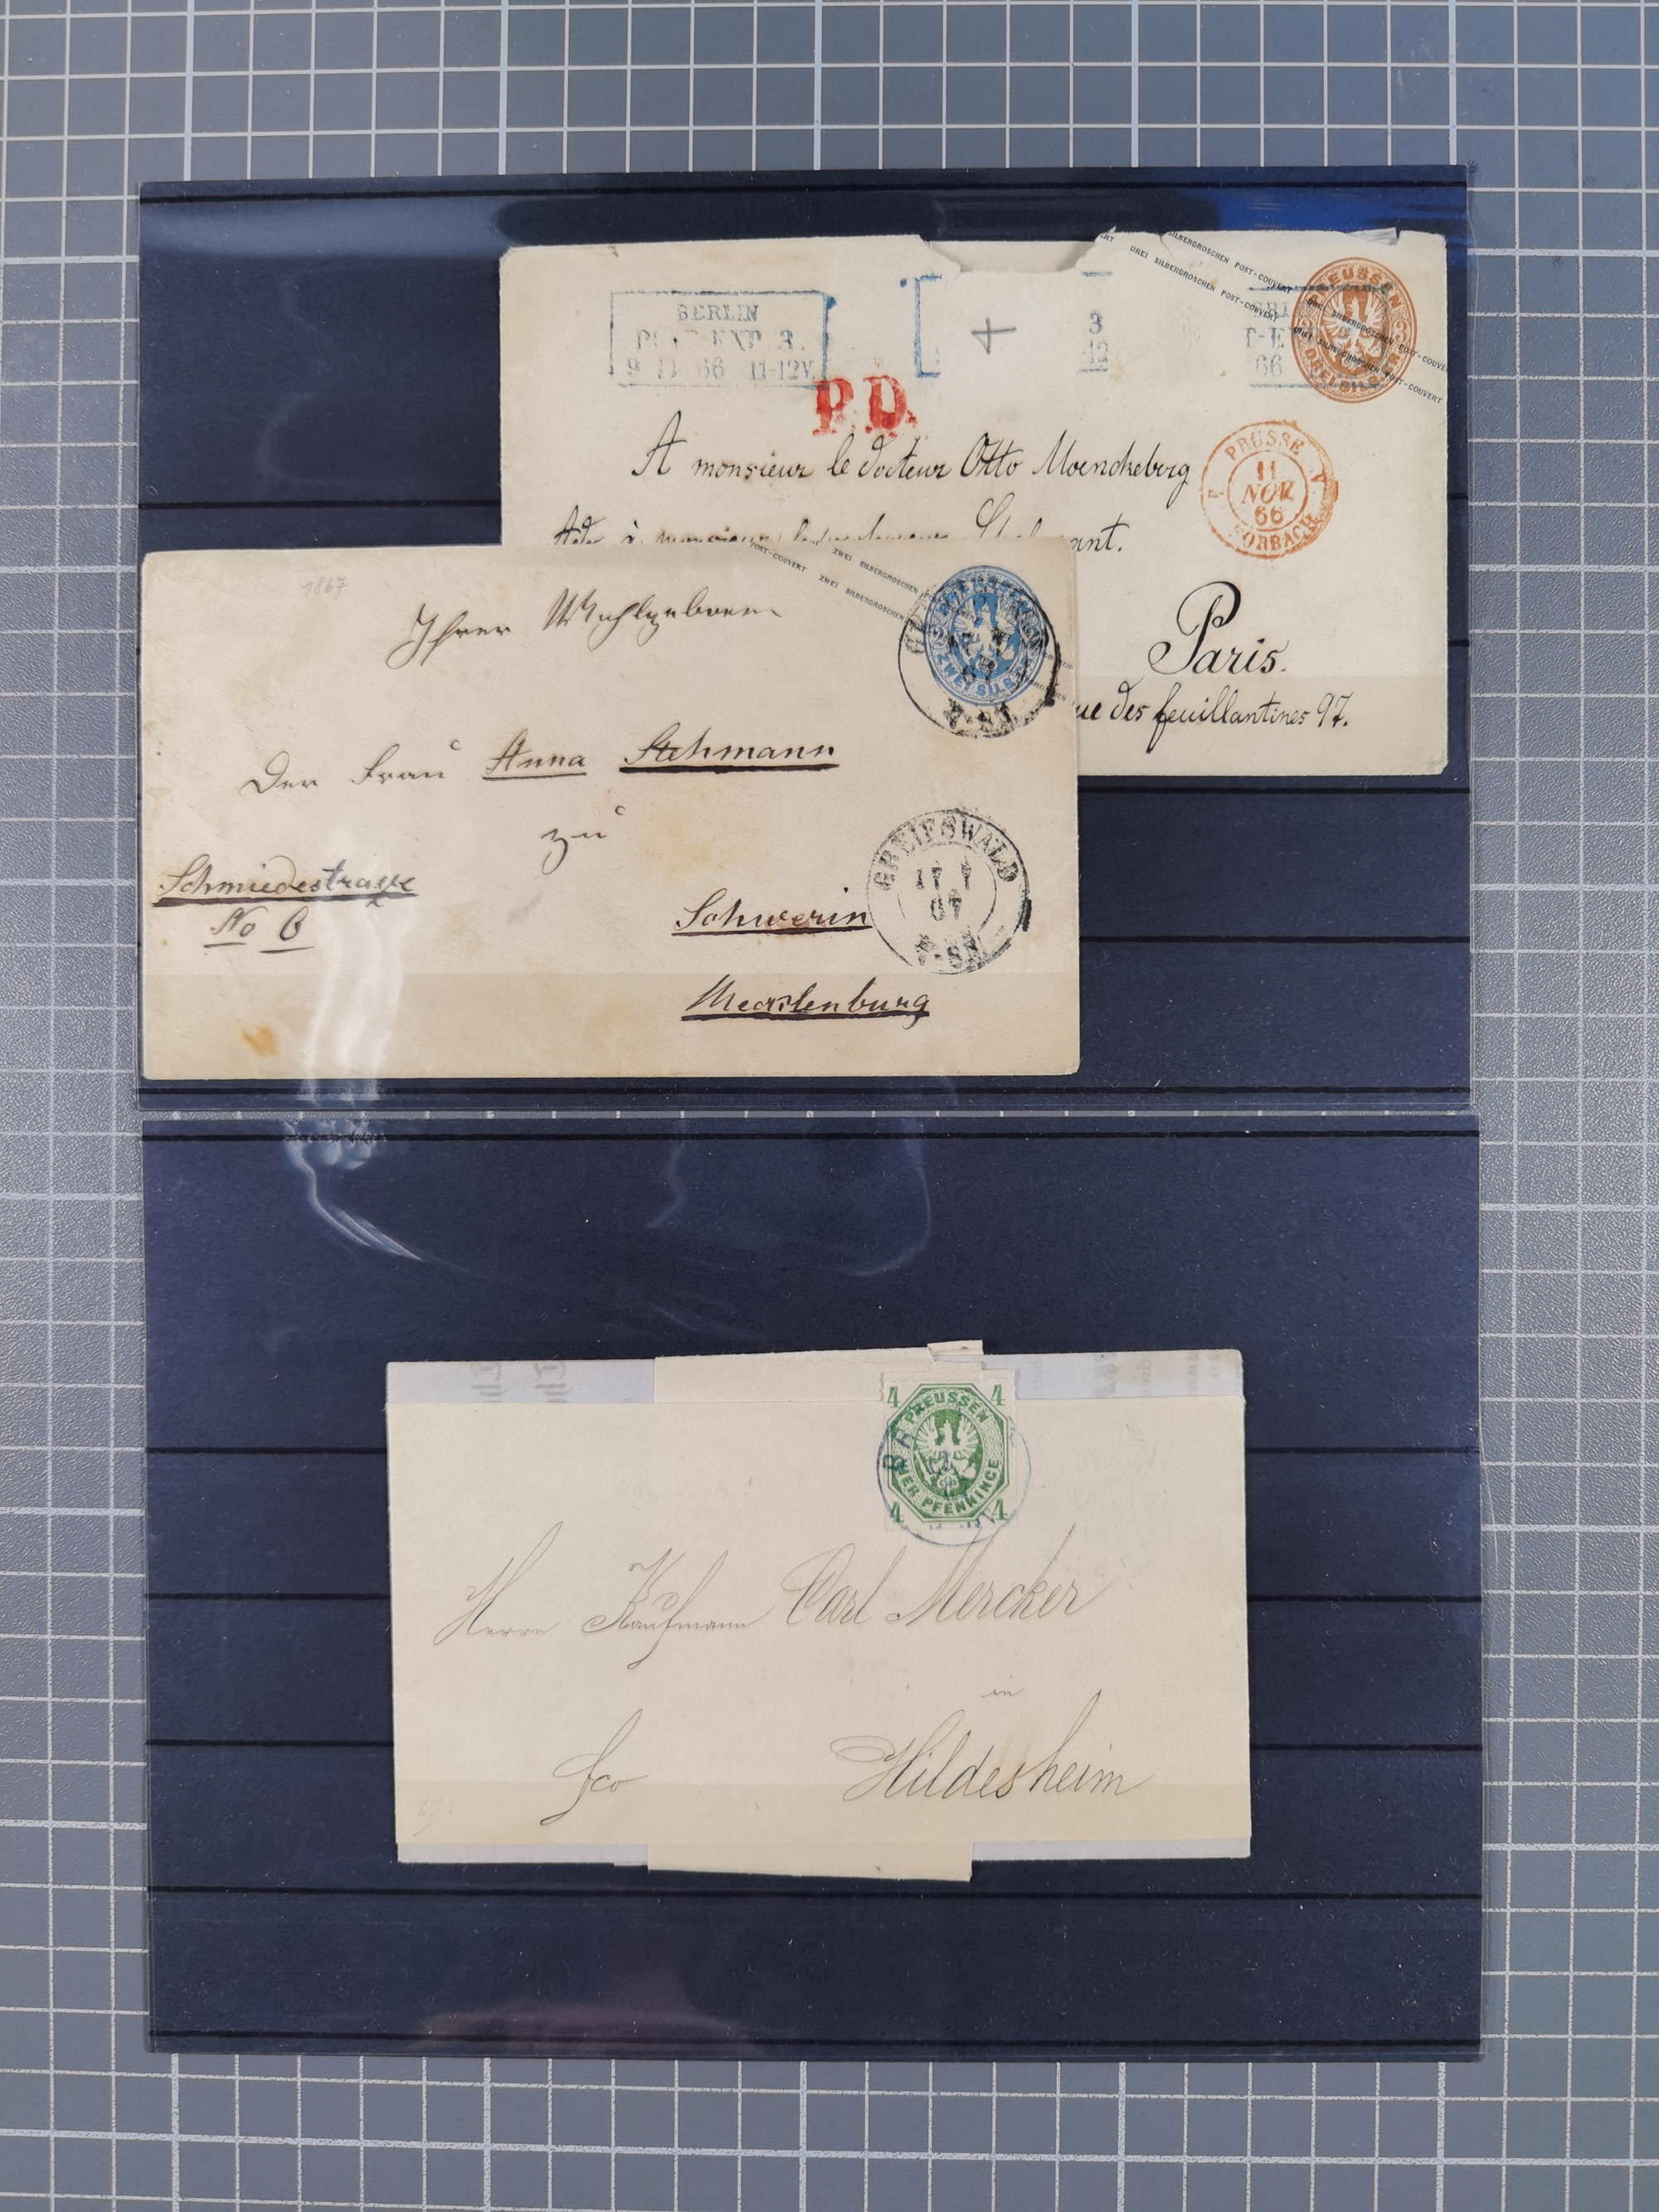 BERLIN
POST-EXP. 3.
9 11 66 11-12V.
3
12
66
P.D.
DREI SILBERGROSCHEN POST-COUVERT
DREI SILBERGROSCHEN POST-COUVERT
PREUSSEN
DREI SILB. GR.
PRUSSE
11
NOV.
66
FORBACH
A monsieur le docteur Otto Moenckeberg
Paris.
rue des feuillantines 97.
1867
POST-COUVERT ZWEI SILBERGROSCHEN
ZWEI SILBERGROSCHEN
PREUSSEN
ZWEI SILB. GR.
7-8N
Ihrer Wohlgeboren
Der Frau Anna Stehmann
zu
Schmiedestraße
No 6
Schwerin
Mecklenburg
GREIFSWALD
17
67
7-8N
4 4
PREUSSEN
VIER PFENNINGE
4 4
Herrn Kaufmann Carl Mercker
in
fco Hildesheim